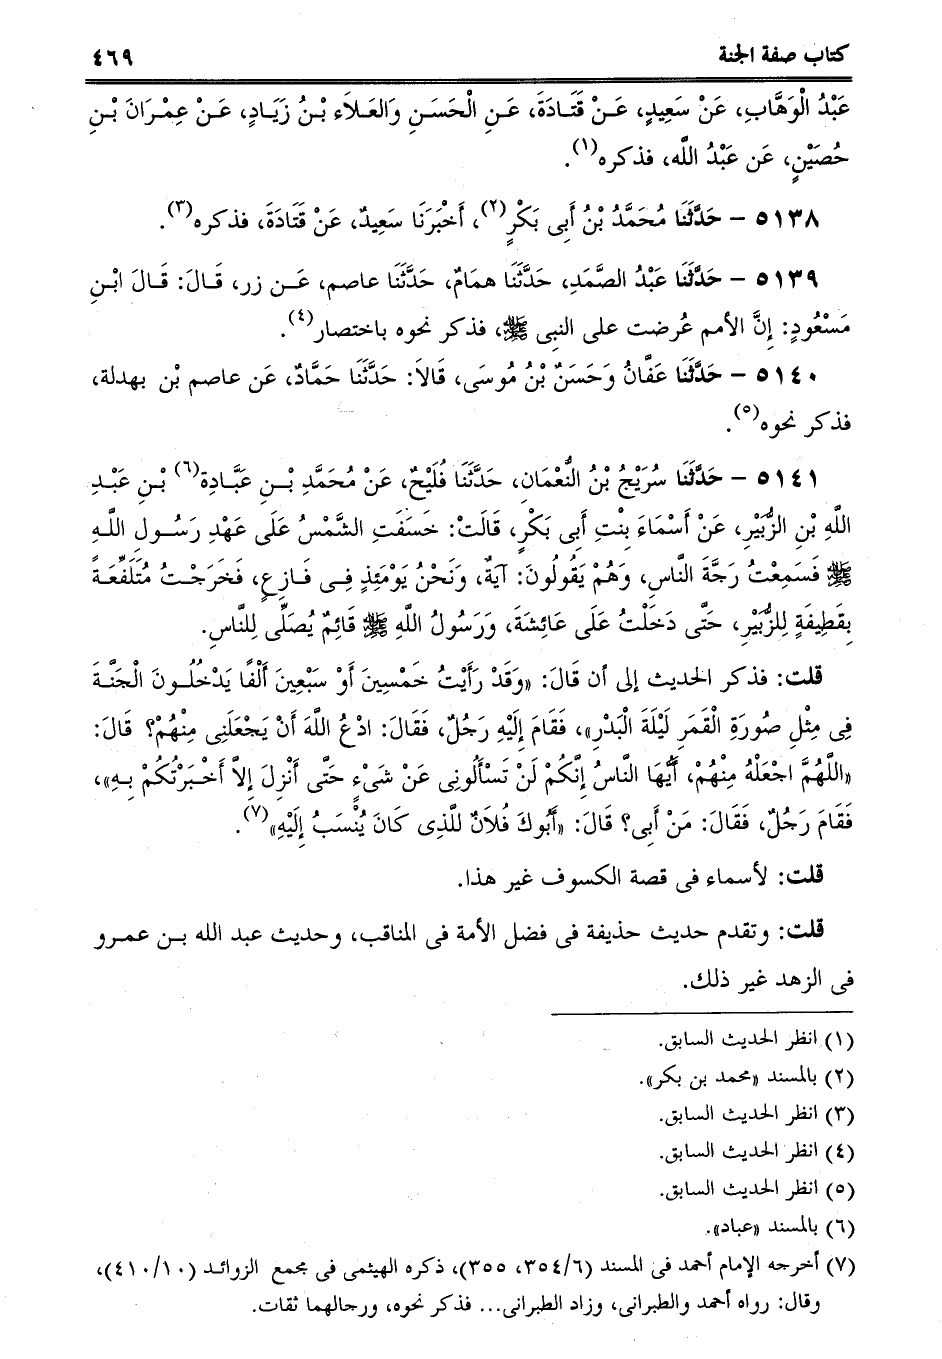 كتاب صفة الجنة ٤٦٩
عَبْدُ الْوَهَّابِ، عَنْ سَعِيدٍ، عَنْ قَتَادَةَ، عَنِ الْحَسَنِ وَالعَلاَءِ بْنُ زَيَادٍ، عَنْ عِمْرَانَ بْنِ
حُصَيْنٍ، عَن عَبْدُ اللَّه، فذكره(١).
٥١٣٨ - حَدَّثَنَا مُحَمَّدُ بْنُ أَبِى بَكْرٍ(٢)، أَخْبَرَنَا سَعِيدٌ، عَنْ قَتَادَةَ، فذكره(٣).
٥١٣٩ - حَدَّثَنَا عَبْدُ الصَّمَدِ، حَدَّثَنَا همَامٌ، حَدَّثَنَا عاصم، عَن زر، قَالَ: قَالَ ابْنِ
مَسْعُودٍ: إِنَّ الأمم عُرضت على النبى ﷺ، فذكر نحوه باختصار(٤).
٥١٤٠ - حَدَّثَنَا عَفَّانُ وَحَسَنٌ بْنُ مُوسَى، قَالاَ: حَدَّثَنَا حَمَّادٌ، عَن عاصم بْن بهدلة،
فذكر نحوه(٥).
٥١٤١ - حَدَّثَنَا سُرَيْجُ بْنُ النُّعْمَان، حَدَّثَنَا فُلَيْحٌ، عَنْ مُحَمَّدِ بْنِ عَبَّادِة(٦) بْنِ عَبْدِ
اللَّهِ بْنِ الزُّبَيْرِ، عَنْ أَسْمَاءَ بِنْتِ أَبِى بَكْرٍ، قَالَتْ: خَسَفَتِ الشَّمْسُ عَلَى عَهْدِ رَسُولِ اللَّهِ
ﷺ فَسَمِعْتُ رَجَّةَ النَّاسِ، وَهُمْ يَقُولُونَ: آيَةٌ، وَنَحْنُ يَوْمَئِذٍ فِى فَازِعٍ، فَخَرَجْتُ مُتَلَفِّعَةً
بِقَطِيفَةٍ لِلزُّبَيْرِ، حَتَّى دَخَلْتُ عَلَى عَائِشَةَ، وَرَسُولُ اللَّهِ ﷺ قَائِمٌ يُصَلِّى لِلنَّاسِ.
قلت: فذكر الحديث إلى أن قَالَ: «وَقَدْ رَأَيْتُ خَمْسِينَ أَوْ سَبْعِينَ أَلْفًا يَدْخُلُونَ الْجَنَّةَ
فِى مِثْلِ صُورَةِ الْقَمَرِ لَيْلَةَ الْبَدْرِ»، فَقَامَ إِلَيْهِ رَجُلٌ، فَقَالَ: ادْعُ اللَّهَ أَنْ يَجْعَلَنِى مِنْهُمْ؟ قَالَ:
«اللَّهُمَّ اجْعَلْهُ مِنْهُمْ، أَيُّهَا النَّاسُ إِنَّكُمْ لَنْ تَسْأَلُونِى عَنْ شَىْءٍ حَتَّى أَنْزِلَ إِلاَّ أَخْبَرْتُكُمْ بِهِ»،
فَقَامَ رَجُلٌ، فَقَالَ: مَنْ أَبِى؟ قَالَ: «أَبُوكَ فُلاَنٌ للَّذِى كَانَ يُنْسَبُ إِلَيْهِ»(٧).
قلت: لأسماء فى قصة الكسوف غير هذا.
قلت: وتقدم حديث حذيفة فى فضل الأمة فى المناقب، وحديث عبد الله بن عمرو
فى الزهد غير ذلك.
(١) انظر الحديث السابق.
(٢) بالمسند «محمد بن بكر».
(٣) انظر الحديث السابق.
(٤) انظر الحديث السابق.
(٥) انظر الحديث السابق.
(٦) بالمسند «عباد».
(٧) أخرجه الإمام أحمد فى المسند (٣٥٤/٦، ٣٥٥)، ذكره الهيثمى فى مجمع الزوائد (٤١٠/١٠)،
وقال: رواه أحمد والطبرانى، وزاد الطبرانى... فذكر نحوه، ورجالهما ثقات.